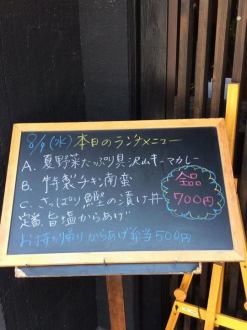 8/9(水)本日のランチメニュー
A. 夏野菜たっぷり具沢山キーマカレー
B. 特製チキン南蛮
C. さっぱり鰹の漬け丼
定番 旨塩からあげ
全品
700円
お持ち帰りからあげ弁当500円